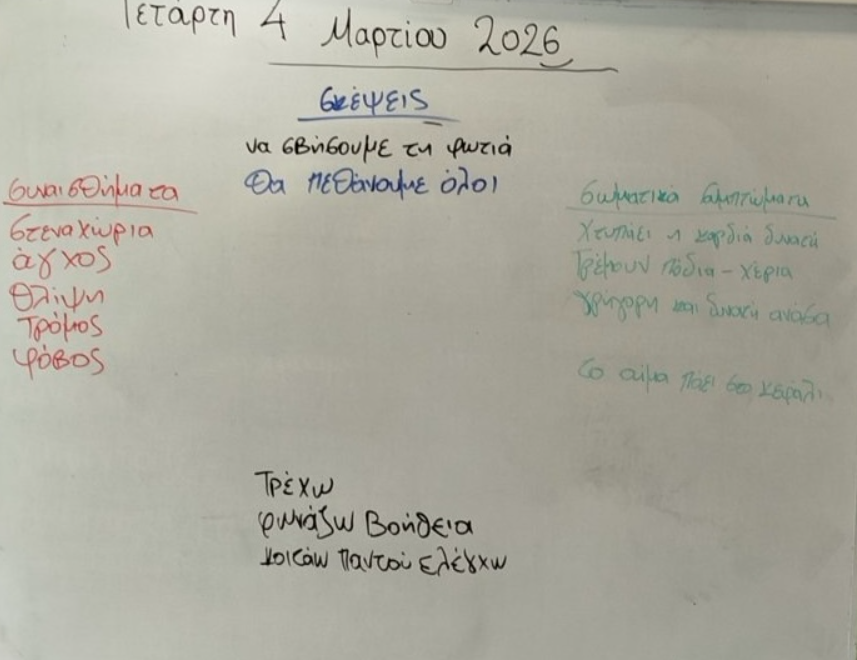 Τετάρτη 4 Μαρτίου 2026
Σκέψεις
να σβήσουμε τη φωτιά
Θα πεθάνουμε όλοι
συναισθήματα
στεναχώρια
άγχος
θλίψη
Τρόμος
φόβος
Σωματικά συμπτώματα
Χτυπάει η καρδιά δυνατά
Τρέμουν πόδια - χέρια
γρήγορη και δυνατή ανάσα
το αίμα πάει στο κεφάλι
Τρέχω
φωνάζω Βοήθεια
κοιτάω παντού ελέγχω